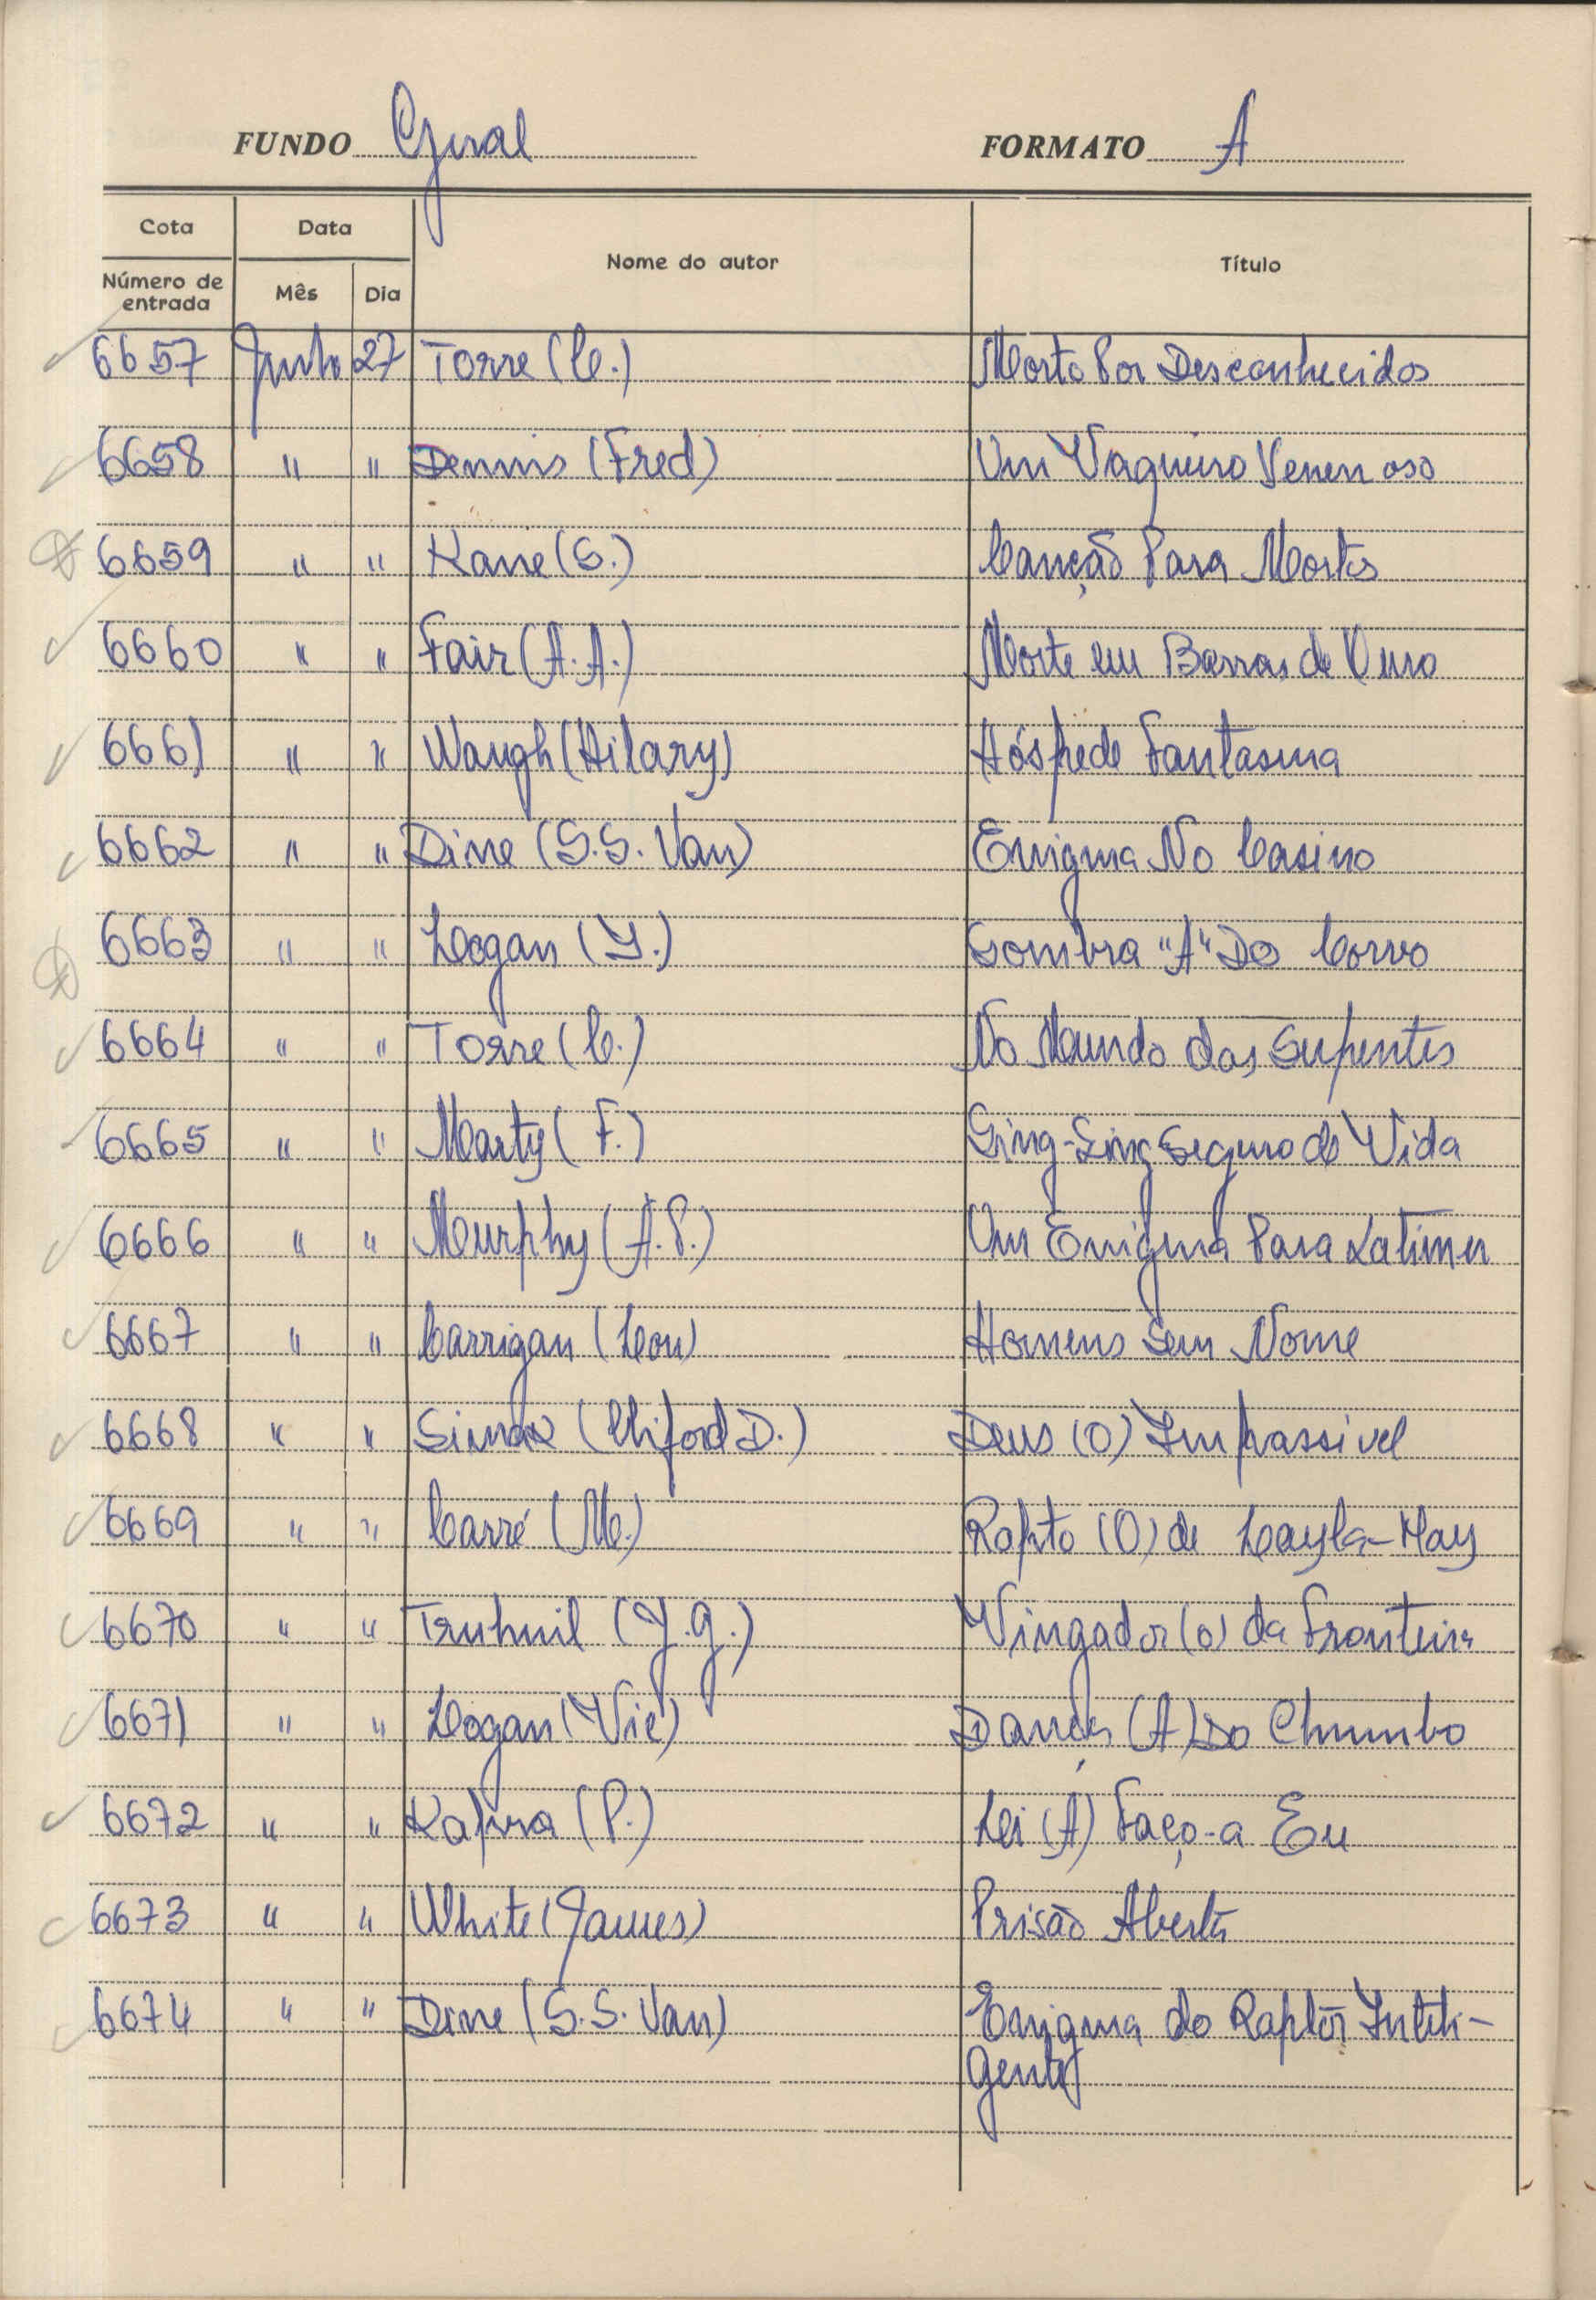 FUNDO Geral FORMATO A
Cota Data Nome do autor Título
Número de entrada Mês Dia
6657 Junho 27 Torre (C.) Morto Por Desconhecidos
6658 " " Dennis (Fred) Um Vaqueiro Venenoso
6659 " " Kane (S.) Canção Para Mortos
6660 " " Fair (A.A.) Morte em Barras de Ouro
6661 " " Waugh (Hilary) Hóspede Fantasma
6662 " " Dine (S.S. Van) Enigma No Casino
6663 " " Logan (Y.) Sombra "A" Do Corvo
6664 " " Torre (C.) No Mundo das Serpentes
6665 " " Marty (F.) Sing-Sing Seguro de Vida
6666 " " Murphy (A.P.) Um Enigma Para Latimer
6667 " " Carrigan (Lou) Homens Sem Nome
6668 " " Simak (Cliford D.) Deus (O) Impassivel
6669 " " Carré (M.) Rapto (O) de Layla-May
6670 " " (J.G.) Vingador (O) da Fronteira
6671 " " Logan (Vic) Dança (A) Do Chumbo
6672 " " Kapra (P.) Lei (A) Faço-a Eu
6673 " " White (James) Prisão Aberta
6674 " " Dine (S.S. Van) Enigma do Raptor Inteli-
gente